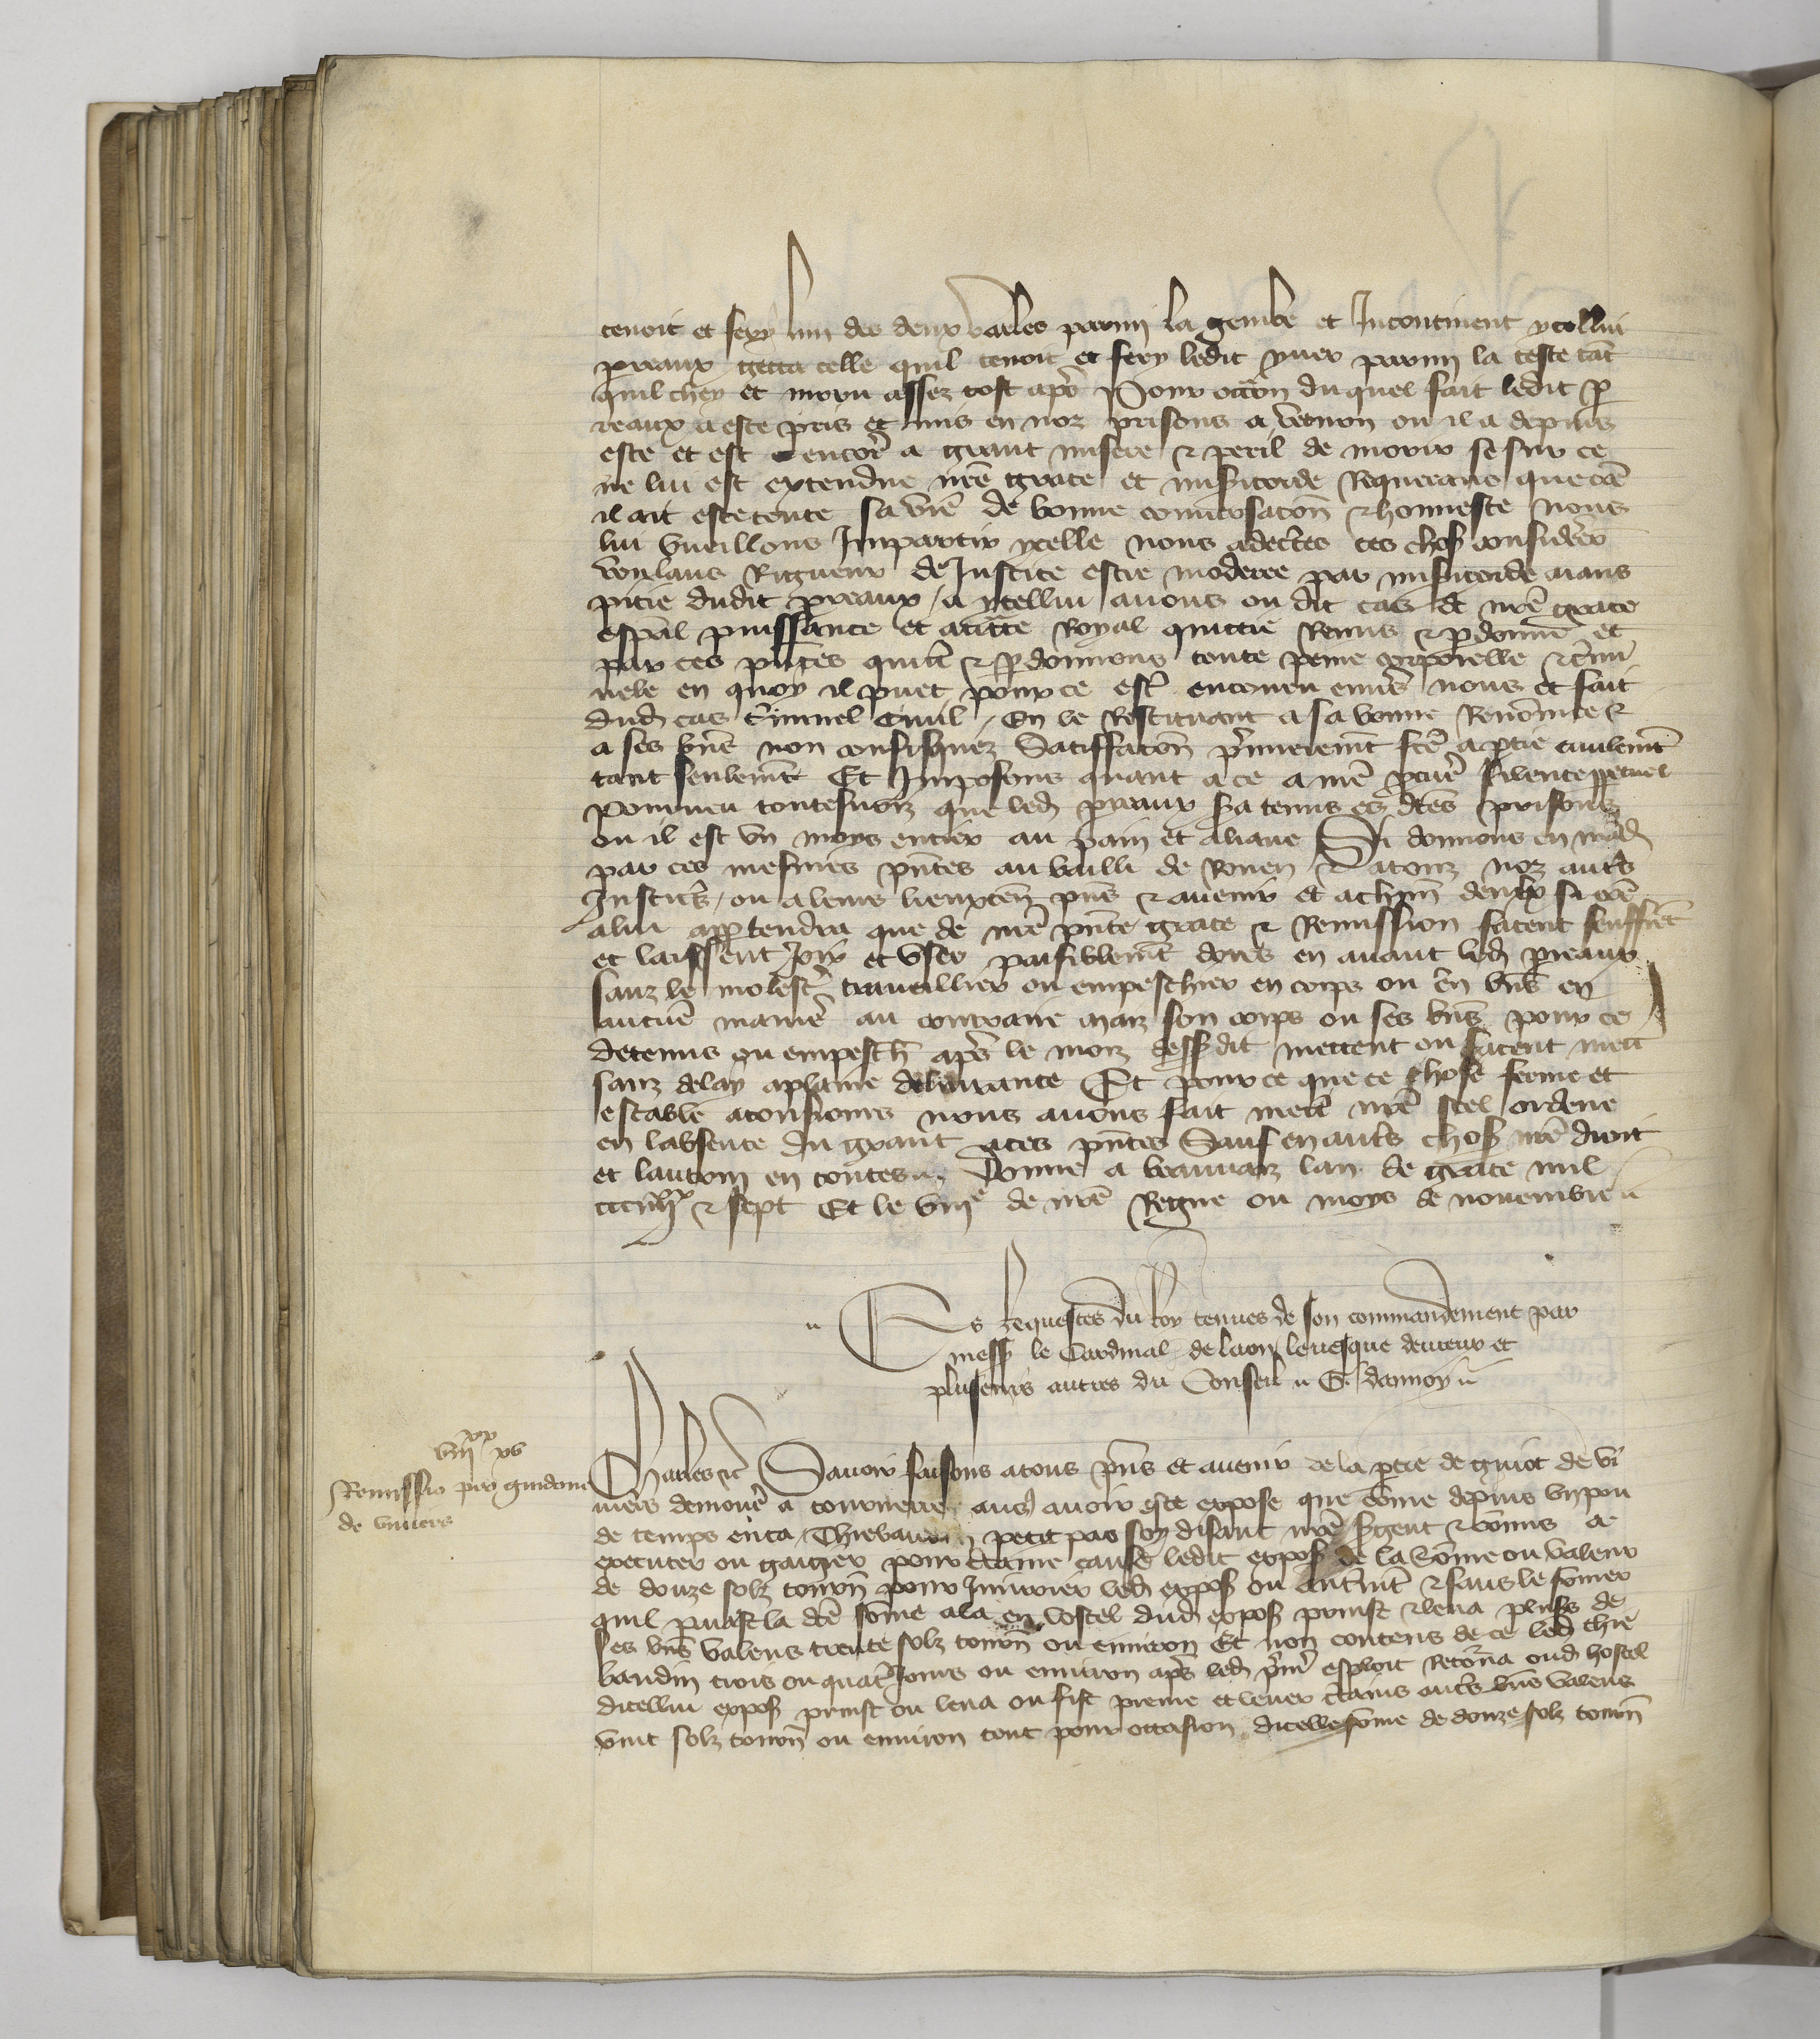 tenoit et fery lun des deux varles parmi la gembe et Incontinent ycellui
preaux getta celle quil tenoit et fery ledit yver parmi la teste tāt
quil chey et moru assez tost ap̄s Pour occōn du quel fait ledit p
reaux a este pris et mis en noz prisons a vernon ou il a depuis
este et est encor̄ a grant misere & peril de morir se sur ce
ne lui est extendue nr̄e grace et miscorde Requerans que cōe
il ait este toute sa vie de bonne conversacōn & honneste nous
lui vueillons Impartir ycelle nous adectes ces chos̄ consider̄
voulans Rigueur de Justice estre moderee par miscorde aians
pitie dudit preaux a ycellui avons ou dit cas de nr̄e grace
esp̄al puissance et auctte Royal quittie Remis & pdonne et
par ces pn̄tes quitt̄ & pdonnons toute peine corporelle & c̄mi
nele en quoy il puet pour ce est̄ encouru env̄s nous et fait
dud cas c̄iminel Civil En le Restituant a sa bonne Renōmee &
a ses bn̄s non confisquez Satisfacōn p̄mierem̄t fc̄e a ptie civilem̄t
tant seulem̄t Et Imposons quant a ce a nr̄e pcur̄ silence ppetuel
Pourveu toutesvoiz que led preaux sera tenus es dc̄es prisons
ou il est un moys entier au pain et a leaue Si donnons en mād
par ces mesmes pn̄tes au bailli de Rouen & a touz noz aut̄s
Justic̄s ou a leurs lieuxten̄ pn̄s & avenir et a chun̄ deulx si cōe
a lui apptendra que de nr̄e pn̄te grace & Remission facent seuffrēt
et laissent Joir et User paisiblem̄t dores en avant led preaux
sanz le molest̄ travaillier ou empeschier en corps ou en bn̄s en
aucun̄e manie̅ au contraire maiz son corps ou ses bn̄s pour ce
detenus ou empesch̄ ap̄s le moiz dess dit mettent ou facent mett̄
sanz delay a plaine delivrance Et pour ce que ce chose ferme et
estable a tousjours nous avons fait mett̄ nr̄e scel ordene
en labsence du grant a ces pn̄tes Sauf en aut̄s chos̄ nr̄e droit
et lautrui en toutes Donne a beauvaiz lan de grace mil
ccciiiixx & sept Et le viije de nr̄e Regne ou moys de novembre
Es Requestes du Roy tenues de son commandement par
mess le Cardinal de laon levesque deureux et
plusieurs autres du Conseil G. daunoy
viiixx xv
Remissio pro guidone
de viviers
Charles &c Savoir faisons a tous pn̄s et avenir de la ptie de guiot de vi
viers demour̄ a tournerre a nous avoir este expose que cōme depuis un pou
de temps en ca Thiebaudin petit pas soy disant nr̄e s̄gent & venus
executer ou gaiger pour c̄taine cause ledit expos̄ de la sōme ou valeur
de douze solz tourn̄ pour Injurier led expos̄ ou aut̄m̄t & sans le sōmer
quil paiast la dc̄e sōme ala en lostel dud expos̄ prinst & leva pluss de
ses bn̄s valens trente solz tourn̄ ou environ Et non contens de ce led thie
baudin trois ou quat̄ Jours ou environ ap̄s led p̄mier exploit Retōna oud hostel
dicellui expos̄ prinst ou leva ou fist prenre et lever c̄tains aut̄s bn̄s valens
vint solz tourn̄ ou environ tout pour occasion dicelle sōme de douze solz tourn̄